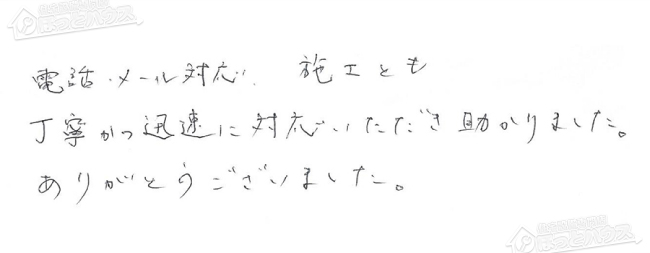 電話・メール対応、施工とも
丁寧かつ迅速に対応いただき助かりました。
ありがとうございました。